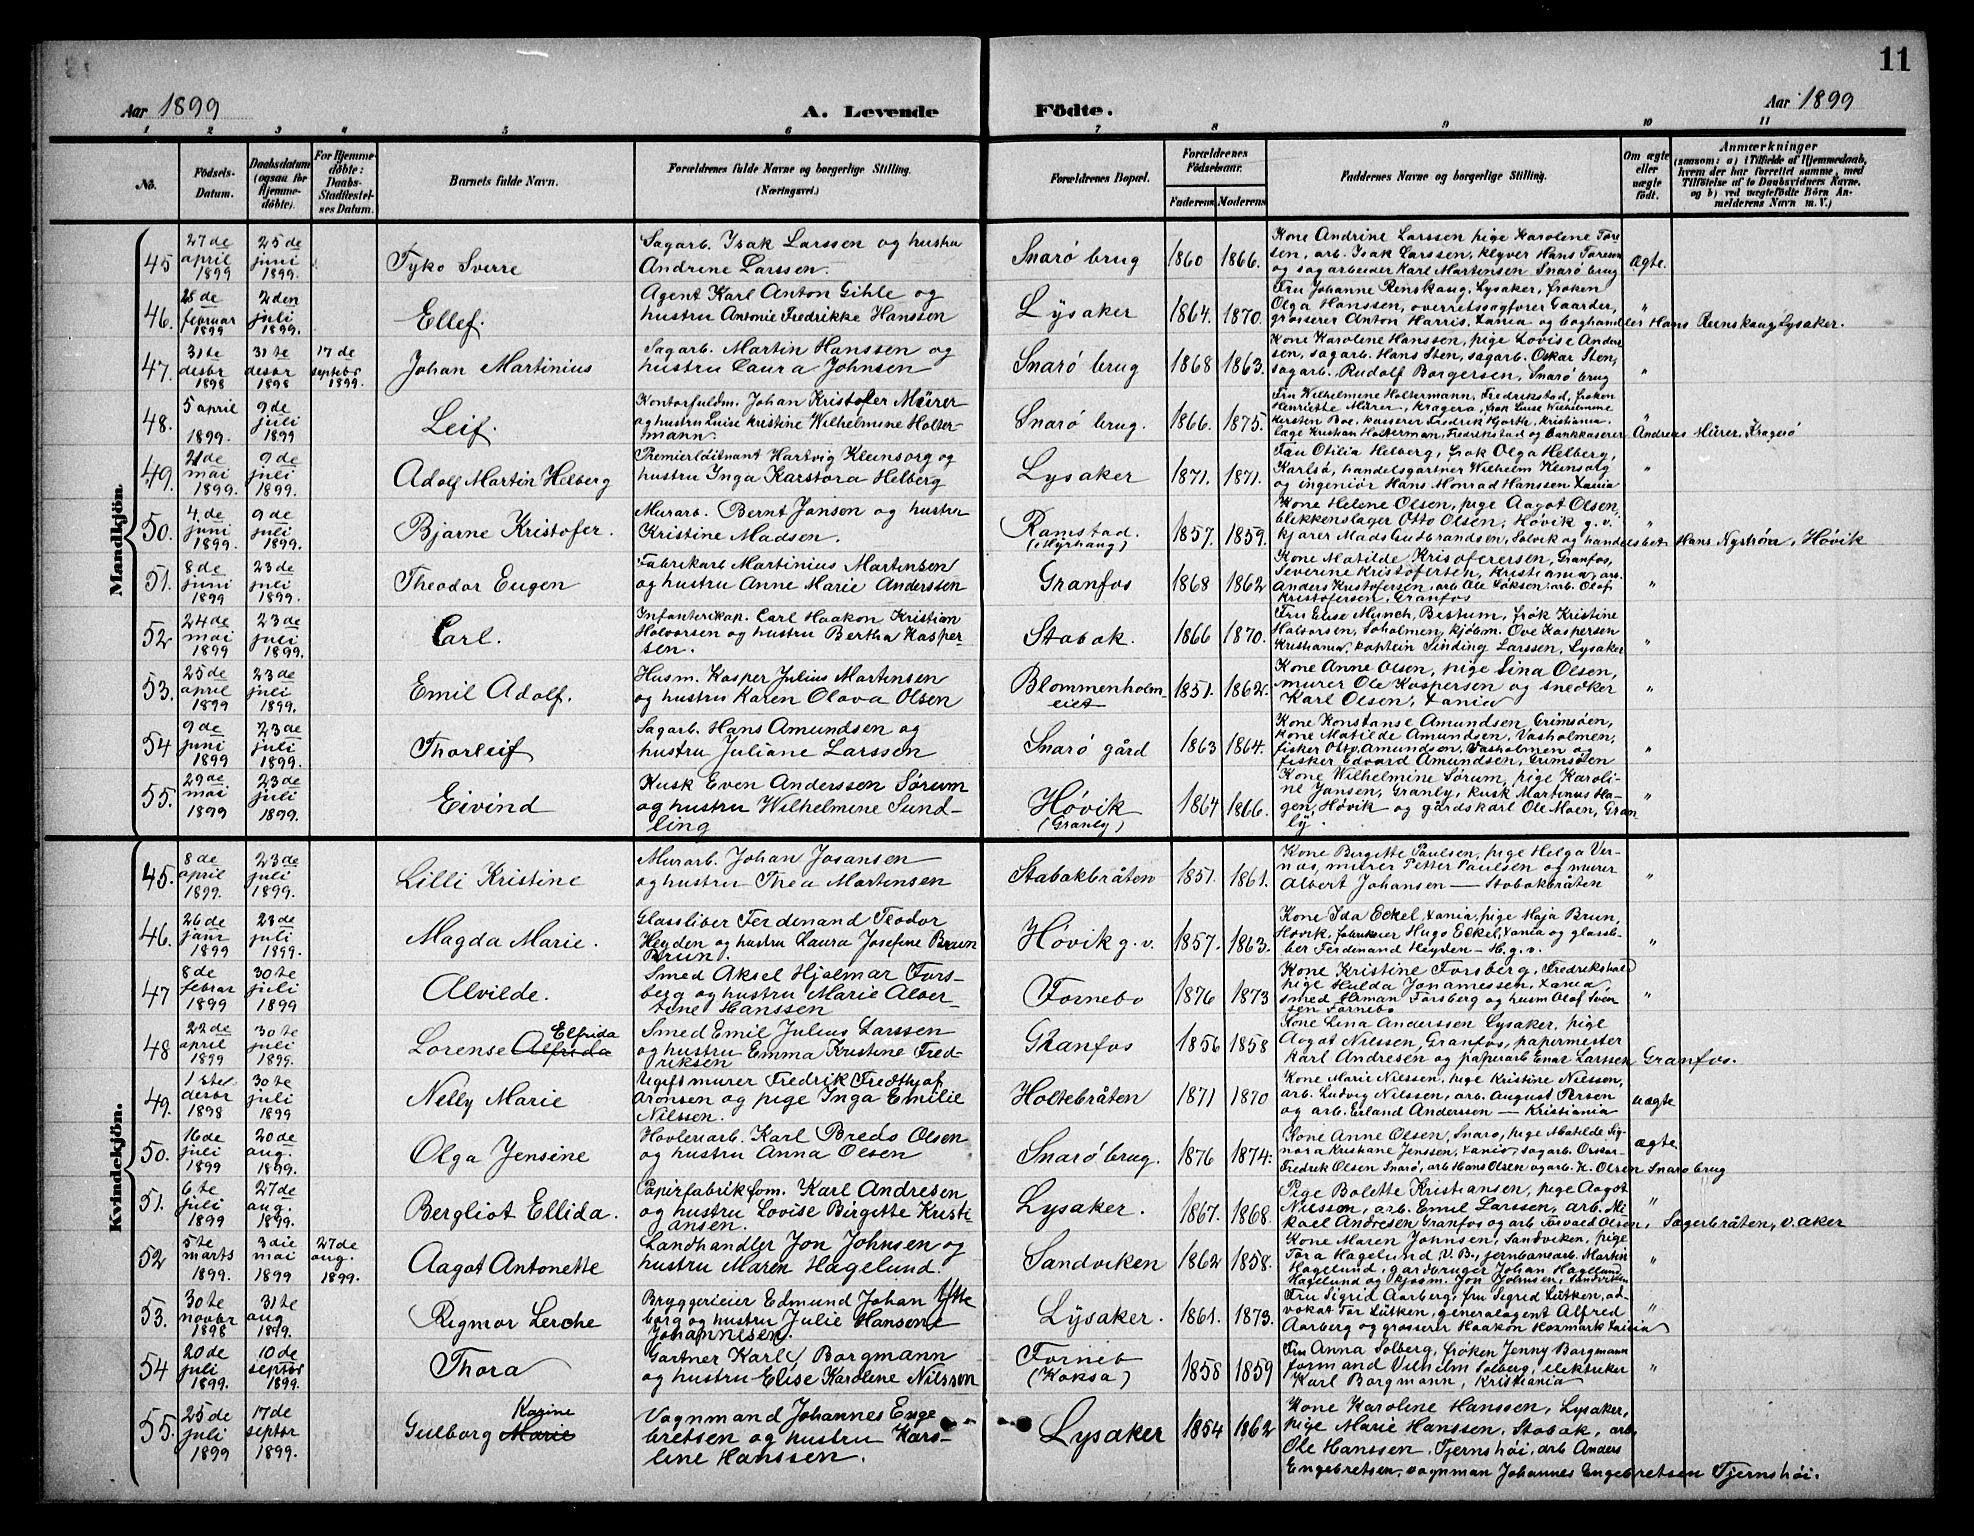 11
Aar 1899
A. Levende Födte.
Aar 1899
1 2 3 4 5 6 7 8 9 10 11
No.
Födsels-Datum.
Daabsdatum (ogsaa for Hjemme-döbte).
For Hjemme-döbte: Daabs-Stadfæstel-ses Datum.
Barnets fulde Navn.
Forældrenes fulde Navne og borgerlige Stilling. (Næringsvei.)
Forældrenes Bopæl.
Forældrenes Födselsaar.
Faderens Moderens
Faddernes Navne og borgerlige Stilling.
Om ægte eller uægte födt.
Anmærkninger (saasom: a) i Tilfælde af Hjemmedaab, hvem der har forrettet samme, med Tilföielse af to Daabsvidners Navne. og b) ved uægtefödte Börn An-melderens Navn m. V.)
Mandkjön.
45 27de april 1899 25de juni 1899. Tyko Sverre Sagarb. Isak Larssen og hustru Andrine Larssen. Snarö brug 1860 1866. Kone Andrine Larssen, pige Karolene Tore-sen, arb. Isak Larssen, klyver Hans Toresen og sagarbeider Karl Martensen Snarö brug ægte.
46. 28de februar 1899 2den juli 1899. Ellef. Agent Karl Anton Gihle og hustru Antonie Fredrikke Hanssen Lysaker 1864. 1870. Fru Johanne Renskaug, Lysaker, fröken Olga Hanssen, overretssagförer Gaarder, grosserer Anton Harris, Xania og boghandler Hans Renskaug, Lysaker. "
47. 31te desbr 1898 31te desbr 1898 17de septebr 1899. Johan Martinius Sagarb. Martin Hanssen og hustru Laura Johnsen Snarö brug 1868 1863. Kone Karolene Hanssen, pige Lovise Ander-sen, sagarb. Hans Sten, sagarb. Oskar Sten, sagarb. Rudolf Borgersen, Snarö brug "
48. 5 april 1899. 9de juli 1899 Leif. Kontorfuldm. Johan Kristofer Mürer og hustru Luise Kristine Wilhelmine Holter-mann. Snarö brug. 1866. 1875. Fru Wilhelmene Holtermann, Fredrikstad, fröken Henriette Mürer, Kragerö, frök Luise Wilhelmine Kersten Boe, kasserer Fredrik Hjorth, Kristiania. læge Kristian Holterman, Fredrikstad og bankkasserer Andreas Mürer, Kragerö "
49. 21de mai 1899. 9de juli 1899. Adolf Martin Helberg Premierlöitnant Hartvig Kleinsorg og hustru Inga Karstora Helberg Lysaker 1871. 1871. Fru Otilia Helberg, frök Olga Helberg, Karlsö, handelsgartner Wilhelm Kleinsorg og ingeniör Hans Monrad Hanssen Xania "
50. 4.de juni 1899. 9de juli 1899. Bjarne Kristofer. Murarb. Bernt Janson og hustru Kristine Madsen. Ramstad. (Myrhaug) 1857. 1859. Kone Helene Olsen, pige Aagot Olsen, blikkenslager Otto Olsen, Hövik g.v. kjører Mads Gulbrandsen, Solvik og handelsbet Hans Nyström, Hövik "
51. 8de juni 1899 23de juli 1899. Theodor Eugen Fabrikarb Martinius Martensen og hustru Anne Marie Anderssen Granfos 1868 1862 Kone Matilde Kristoferersen, Granfos, Severine Kristofersen, Kristiania, arb. Anders Kristofersen, arb Ole Løksen, arb. Olaf Kristofersen, Granfos "
52 24de mai 1899 23de juli 1899. Carl. Infanterikap. Carl Haakon Kristian Halvorsen og hustru Bertha Kasper-sen. Stabak. 1866 1870. Fru Elise Munch Bestum, frök Kristine Halvorsen, Soholmen, kjöbm. Ove Kaspersen Kristiania, kaptein Sinding Larssen, Lysaker "
53. 25de april 1899 23de juli 1899. Emil Adolf. Husm. Kasper Julius Martensen og hustru Karen Olava Olsen Blommenholm-eiet 1851. 1862. Kone Anne Olsen, pige Lina Olsen, murer Ole Kaspersen og snedker Karl Olsen, Xania "
54 9de juni 1899 23de juli 1899. Thorleif Sagarb. Hans Amundsen og hustru Juliane Larssen Snarö gård 1863 1864. Kone Konstanse Amundsen, Grimsöen, kone Matilde Amundsen, Vasholmen, fisker Otto Amundsen, Vasholmen og fisker Edvard Amundsen, Grimsöen "
55. 29de mai 1899 23de juli 1899. Eivind Kusk Even Anderssen Sörum og hustru Wilhelmine Sund-ling Hövik (Granly) 1864 1866. Kone Wilhelmine Sörum, pige Karoli-ne Jansen, Granly, kusk Martinus Ha-gen, Hövik og gårdskarl Ole Moen, Gran-ly. "
Kvindekjön.
45. 8de april 1899. 23de juli 1899. Lilli Kristine Murarb. Johan Josansen og hustru Thea Martensen Stabakbråten 1851. 1861. Kone Birgitte Paulsen, pige Helga Ver-nas, murer Petter Paulsen og murer Albert Johansen — Stabakbråten "
46. 26de janr 1899 23de juli 1899. Magda Marie. Glassliber Ferdenand Teodor Heyden og hustru Laura Josefine Brun Brun. Hövik g.v. 1857. 1863. Kone Ida Eckel, Xania, pige Maja Brun, Hövik, fabrikeier Hugo Eckel, Xania og glassli-ber Ferdinand Heyden — H.g.v. "
47 8de febrar 1899 30te juli 1899 Alvilde. Smed Aksel Hjalmar Fors-berg og hustru Marie Alver-tine Hanssen Fornebo 1876 1873 Kone Kristine Forsberg, Fredrikshald pige Hulda Johannessen, Xania, smed Herman Forsberg og husm Olaf Sven-sen Fornebo "
48 22de april 1899 30te juli 1899. Lorense Alfrida Elfrida Smed Emil Julius Larssen og hustru Emma Kristine Fred-riksen Granfos 1856 1858 Kone Lina Anderssen Lysaker, pige Aagot Nilssen, Granfos, papermester Karl Andresen og paperarb Enar Larssen Granfos.
49. 1ste desbr 1898 30te juli 1899 Nelly Marie Ugift murer Fredrik Fredthjof Aronsen og pige Inga Emilie Nilssen. Holtebråten 1871 1870 Kone Marie Nilssen, pige Kristine Nilssen, arb. Ludvig Nilssen, arb. August Persen og arb. Erland Anderssen — Kristiania uægte
50. 16de juli 1899 20de aug. 1899. Olga Jensine Hövleriarb. Karl Breds Olsen og hustru Anna Olsen Snaröbrug. 1876 1874. Kone Anne Olsen, Snarö, pige Matilde Sig-nora Kristiane Jenssen, Xania, sagarb. Oskar Fredrik Olsen Snarö, arb Hans Olsen og arb. K. Olsen Snarö brug ægte
51. 6te juli 1899 27de aug. 1899. Bergliot Ellida. Papirfabrikfom. Karl Andresen og hustru Lovise Birgitte Kristi-ansen. Lysaker. 1867. 1868. Pige Bolette Kristiansen, pige Aagot Nilsson, arb. Emil Larssen, arb. Mi-kael Andresen Granfos og arb Torvald Olsen, Sagerbråten, v. aker "
52 5te marts 1899. 3die mai 1899 27de aug. 1899. Aagot Antonette Landhandler Jon Johnsen og hustru Maren Hagelund. Sandviken 1862 1858. Kone Maren Johnsen, Sandviken, pige Tora Hagelund V.B., jernbanearb. Martin Hagelund, gardbruger Johan Hagelund Hagelund og kjöbm. Jon Johnsen, Sandviken "
53. 30te novbr 1898 31te aug 1899. Rigmor Lerche Bryggerieier Edmund Johan Ytte borg og hustru Julie Hansene Johannesen. Lysaker. 1861. 1873. Fru Sigrid Aarberg, fru Sigred Lütken, ad-vokat Tor Lütken, generalagent Alfred Aarberg og grosserer Haakon Hoxmark Xania "
54 20de juli 1899. 10de septbr 1899. Thora Gartner Karl Borgmann og hustru Elise Karolene Nilsson Fornebo (Koksa) 1858 1859 Fru Anna Solberg, fröken Jenny Borgmann formand Vilhelm Solberg, elektriker Karl Borgmann, Kristiania "
55. 25de juli 1899 17de septbr 1899. Gulborg Marie Karine Vognmand Johannes Enge bretsen og hustru Karo-line Hanssen. Lysaker 1854 1862 Kone Karolene Hanssen, Lysaker, pige Marie Hanssen, Stabak, arb. Ole Hanssen, Tjernshöi, arb Anders Engebretsen, vognman Johannes Engebretsen Tjernshöi.